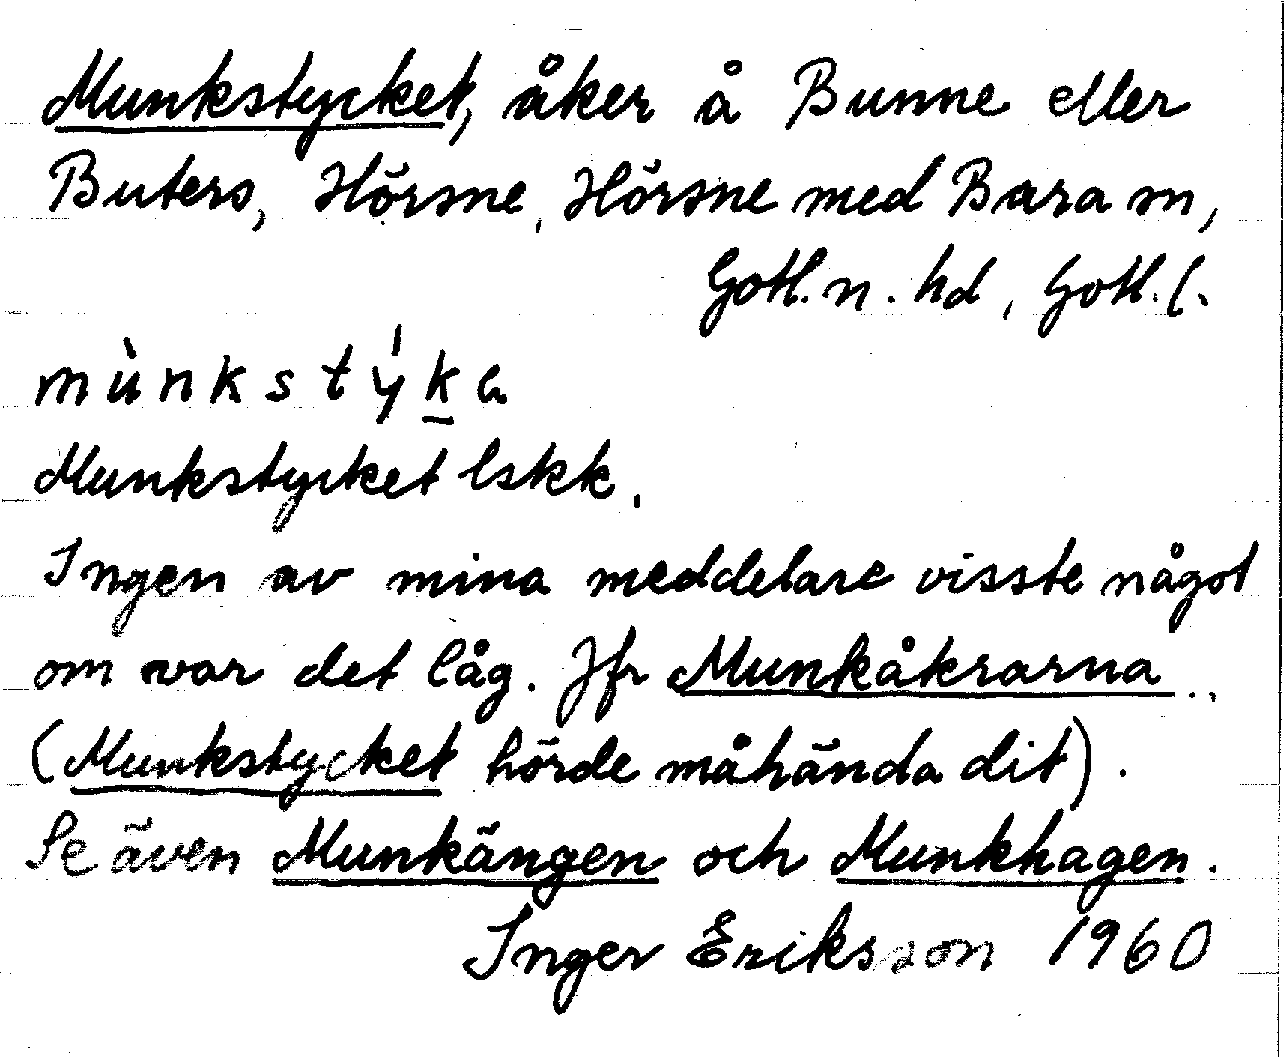 Munkstycket, åker å Bunne eller
Buters, Hörsne, Hörsne med Bara sn,
Gotl. n. hd, Gotl. l.
mùnkstýk̠
Munkstycket lskk.
Ingen av mina meddelare visste något
om var det låg. Jfr Munkåkrarna..
(Munkstycket hörde måhända dit).
Se även Munkängen och Munkhagen.
Inger Eriksson 1960